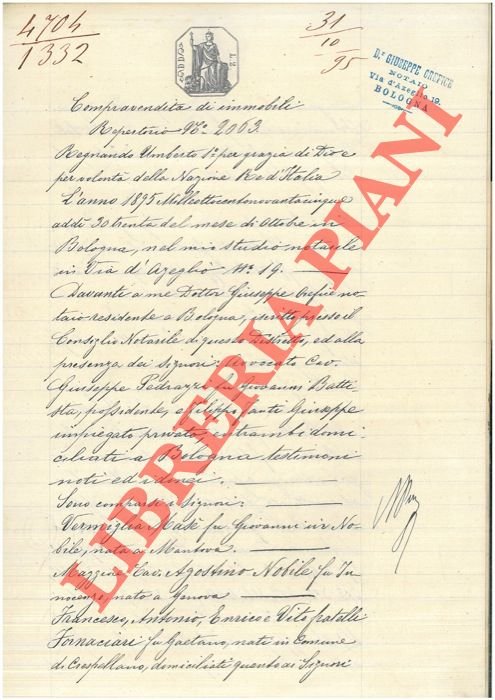 4704
1332
31
10
95
Dr GIUSEPPE OREFICE
NOTAIO
Via d'Azeglio, 19.
BOLOGNA
Compravendita di immobili
Repertorio No 2063.
Regnando Umberto Io per grazia di Dio e
per volontà della Nazione Re d'Italia
L'anno 1895 Milleottocentonovantacinque
addì 30 trenta del mese di Ottobre in
Bologna, nel mio studio notarile
in Via d'Azeglio No 19. —
Davanti a me Dottor Giuseppe Orefice no-
taio residente a Bologna, iscritto presso il
Consiglio Notarile di questo Distretto, ed alla
presenza dei Signori: Avvocato Cav.
Giuseppe Pedrazzi fu Giovanni Batti
sta, possidente, e Filippo Giuseppe
impiegato privato, entrambi domi-
ciliati a Bologna testimoni
noti ed idonei. —
Sono comparsi i Signori:
Vermiglia Masè fu Giovanni in No-
bile, nata a Mantova. —
Maggiore Cav. Agostino Nobile fu In-
nocenzo, nato a Genova
Francesco, Antonio, Enrico e Vito fratelli
Fornaciari fu Gaetano, nati in Comune
di Crespellano, domiciliati quanto ai Signori
LIBRERIA PIANI